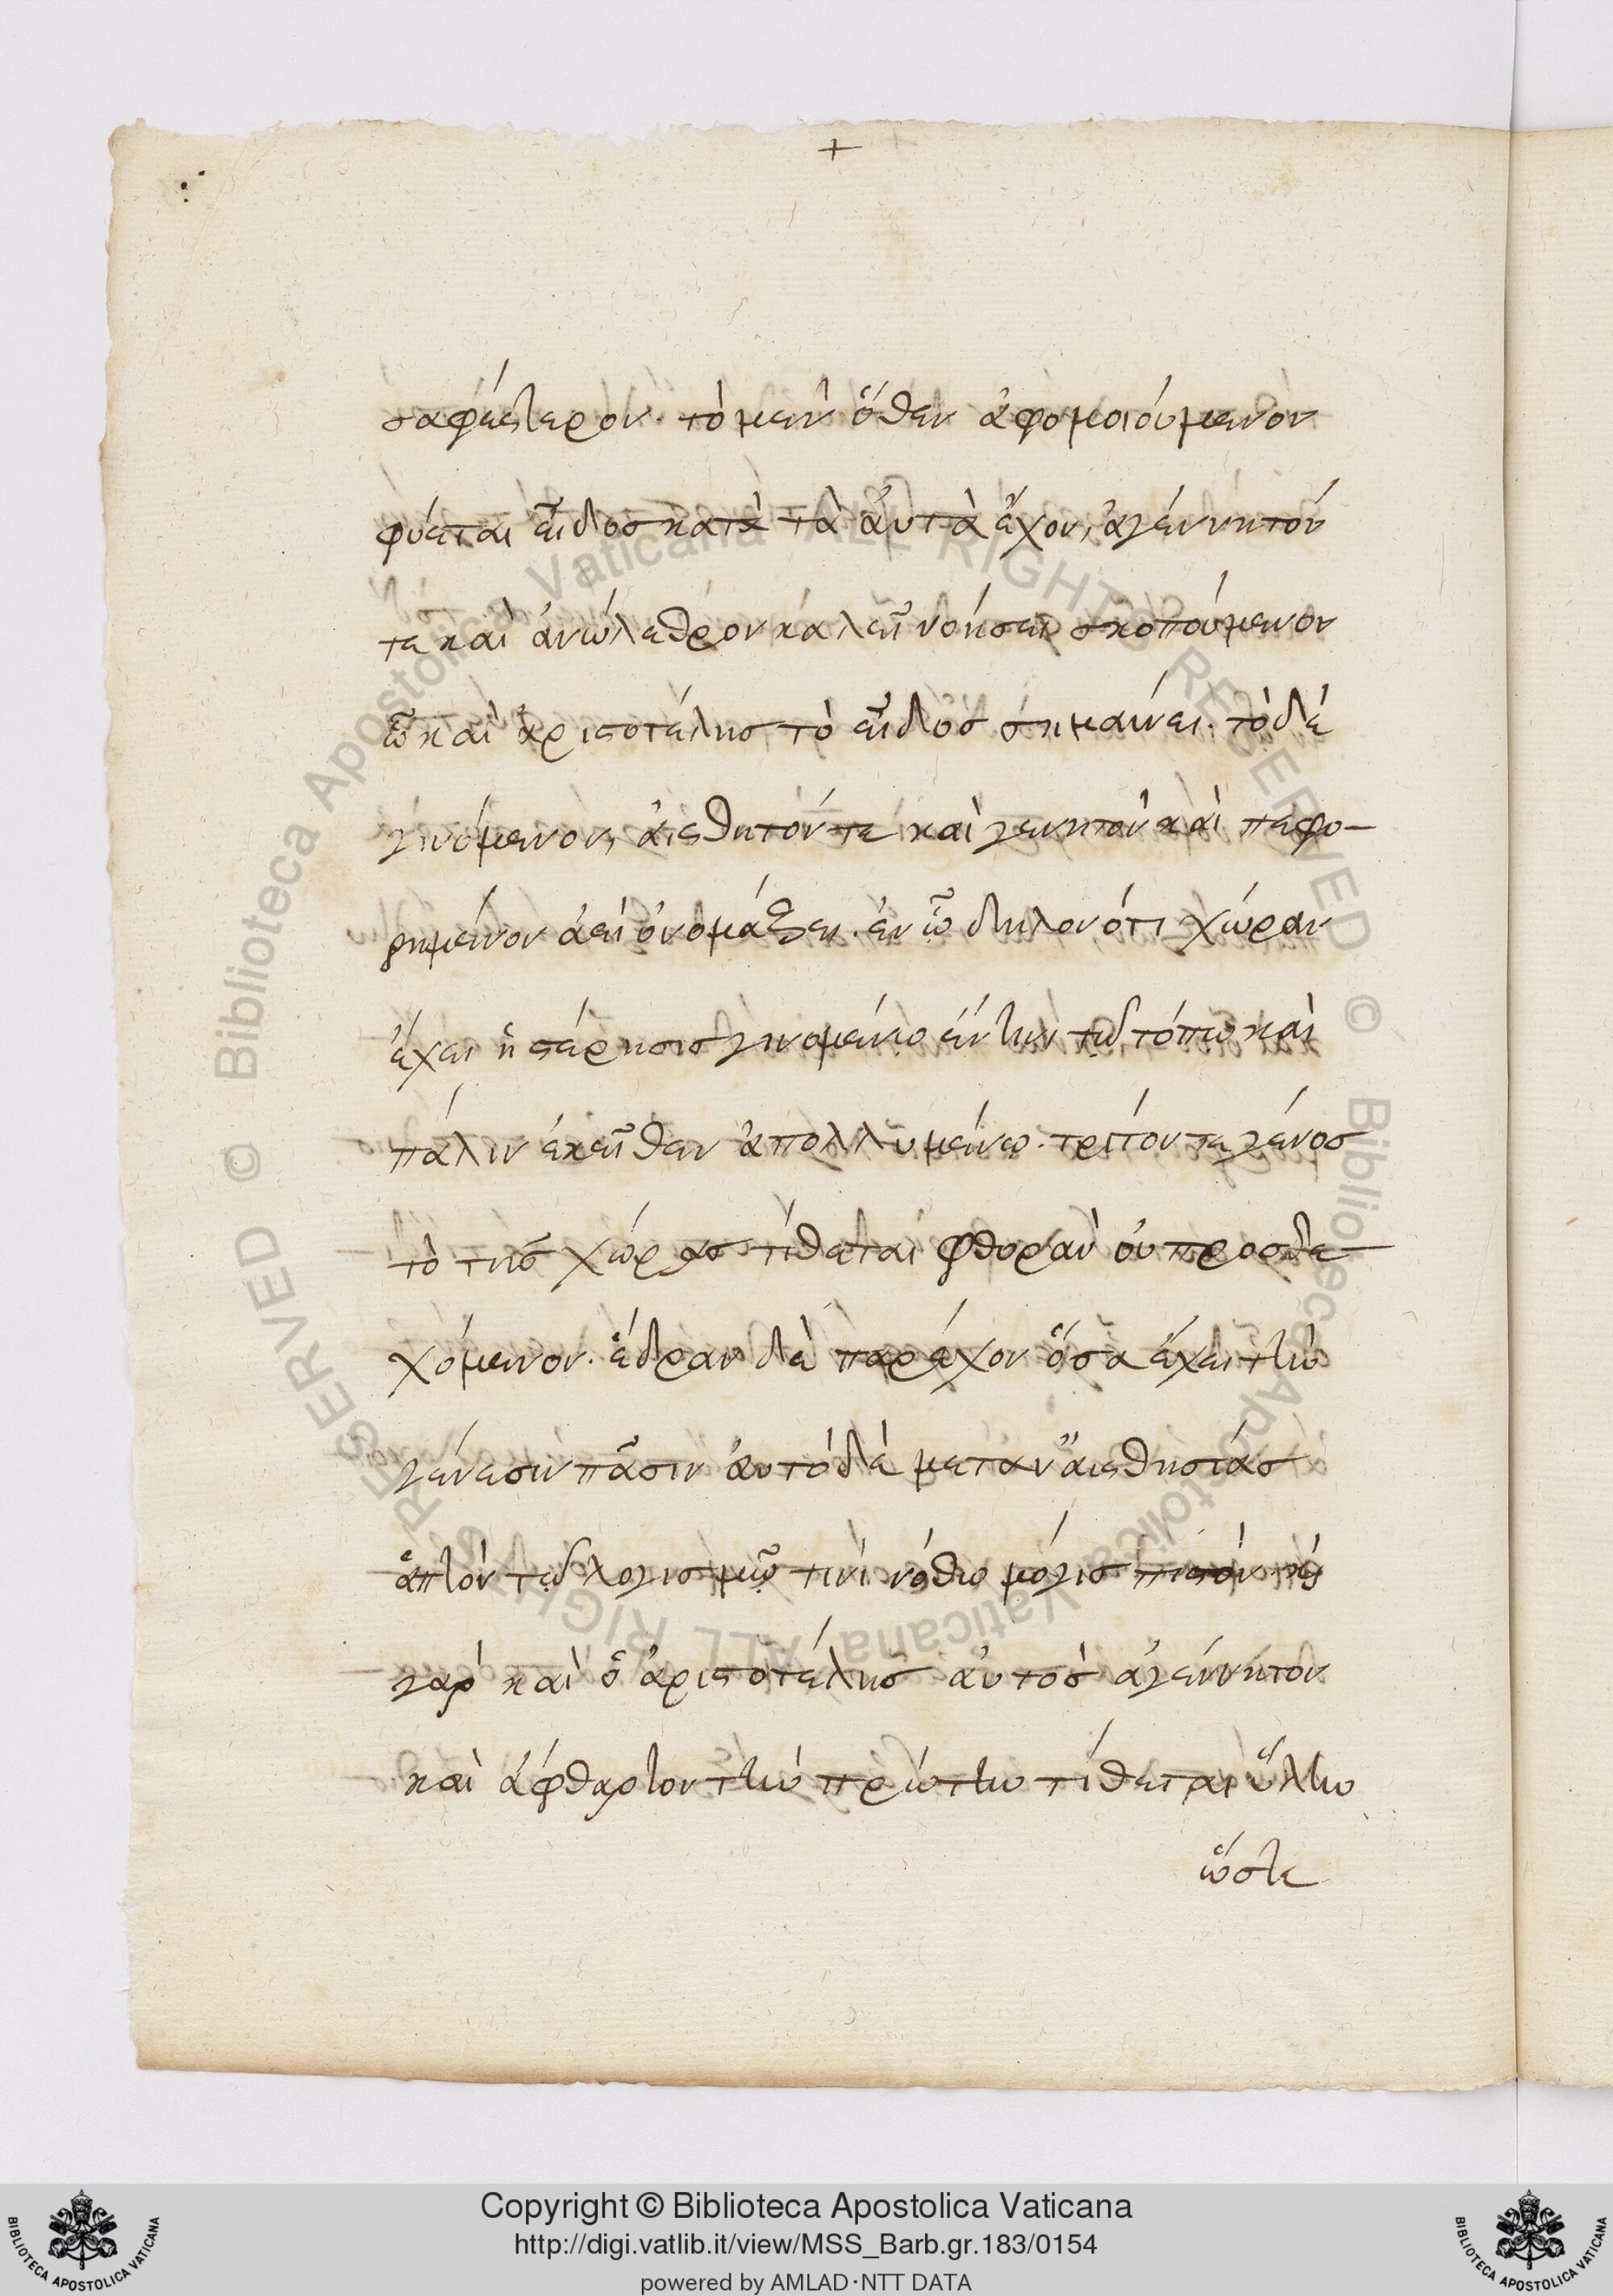 +
σαφέστερον· τὸ μὲν ὅθεν ἀφομοιούμενον
φύεται εἶδος κατὰ τὰ ἀυτὰ ἔχον, ἀγέννητόν
τε καὶ ἀνώλεθρον καλεῖ νοήσει σκοπούμενον
ὧ καὶ ἀριστοτέλης τὸ εἶδος σημαίνει· τὸ δὲ
γινόμενον, ἀισθητόν τε καὶ γενητὸν καὶ πεφο-
ρημένον ἀεὶ ὀνομάζει. ἐν ᾧ δηλονότι χώραν
ἔχει ἡ στέρησις γινομένῳ ἔν τινι τῷ τόπω καὶ
πάλιν ἐκεῖθεν ἀπολλυμένῳ· τρίτον τε γένος
τὸ τῆς χώρας τίθεται φθορὰν οὐ προσδε-
χόμενον· ἕδραν δὲ παρέχον ὅσα ἔχει τὴν
γένεσιν πᾶσιν ἀυτὸ δὲ μεταν ἀισθησίας
ἁπτὸν τῷ λογισμῷ τινὶ νόθω μόγις πιστόν κ
γαρ καὶ ὁ ἀριστοτέλης ἀυτὸς ἀγέννητον
καὶ ἀφθαρτον τὴν πρώτην τίθεται ὕλην
ὥστε
Copyright © Biblioteca Apostolica Vaticana
http://digi.vatlib.it/view/MSS_Barb.gr.183/0154
powered by AMLAD·NTT DATA
BIBLIOTECA APOSTOLICA VATICANA
BIBLIOTECA APOSTOLICA VATICANA
© Biblioteca Apostolica Vaticana ALL RIGHTS RESERVED
© Biblioteca Apostolica Vaticana ALL RIGHTS RESERVED